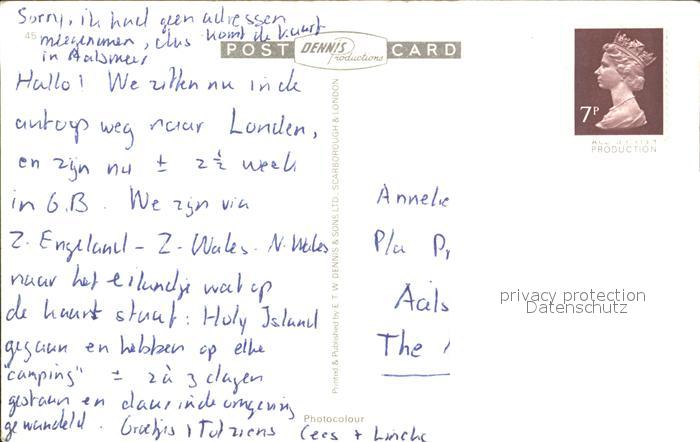 Sorry, ik had geen adressen
meegenomen, dus komt de kaart
in Aalsmeer
45
POST DENNIS Productions CARD
Hallo! We zitten nu in de
auto op weg naar Londen,
en zijn nu ± 2½ week
in G.B. We zijn via
Z. Engeland - Z. Wales - N. Wales
naar het eilandje wat op
de kaart staat: Holy Island
gegaan en hebben op elke
"camping" ± 2 à 3 dagen
gestaan en daar in de omgeving
gewandeld. Groetjes, Tot ziens Cees +
Printed & Published by E. T. W. DENNIS & SONS LTD., SCARBOROUGH & LONDON
Photocolour
7P
PRODUCTION
Anneke
P/a
Aals
The
privacy protection
Datenschutz